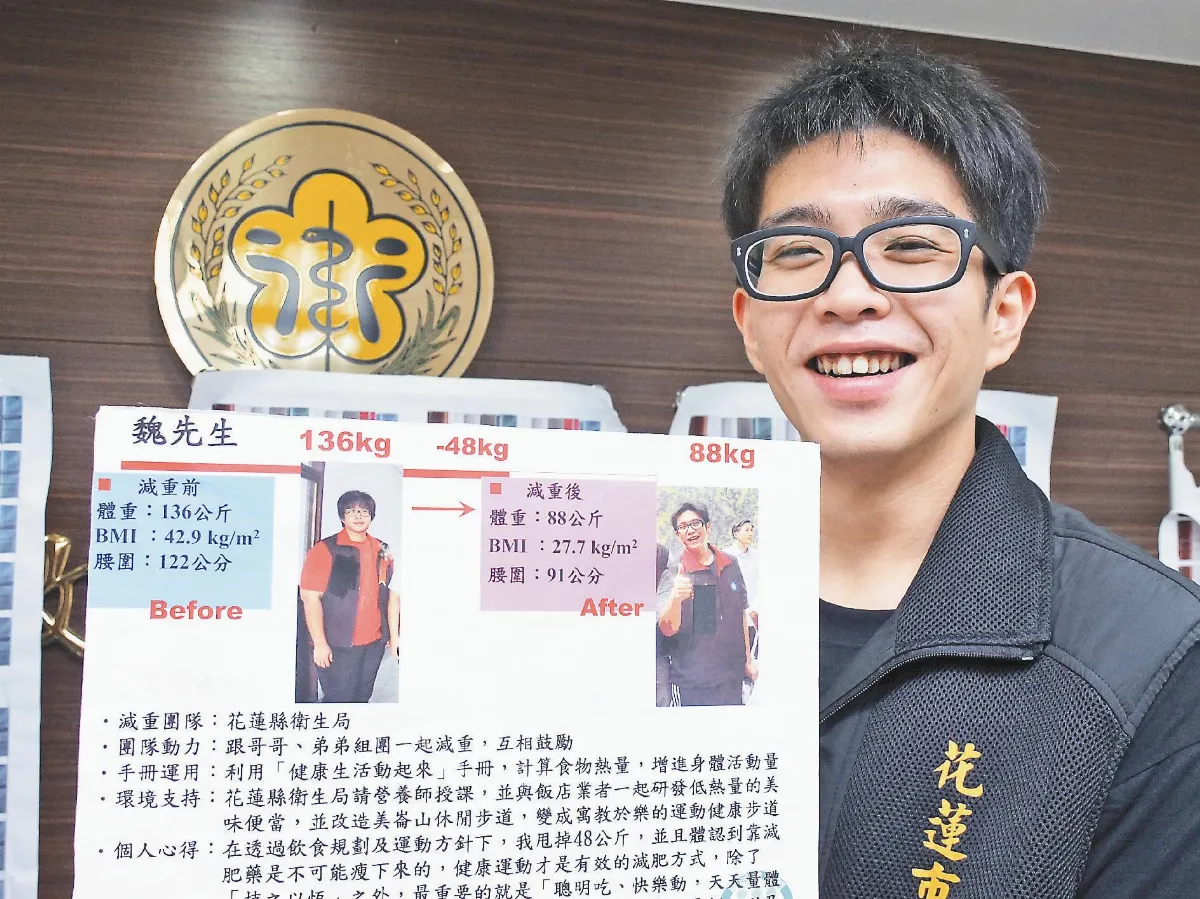 魏先生
136kg
-48kg
88kg
減重前
體重：136公斤
BMI ：42.9 kg/m²
腰圍：122公分
Before
減重後
體重：88公斤
BMI ：27.7 kg/m²
腰圍：91公分
After
・減重團隊：花蓮縣衛生局
・團隊動力：跟哥哥、弟弟組團一起減重，互相鼓勵
・手冊運用：利用「健康生活動起來」手冊，計算食物熱量，增進身體活動量
・環境支持：花蓮縣衛生局請營養師授課，並與飯店業者一起研發低熱量的美
味便當，並改造美崙山休閒步道，變成寓教於樂的運動健康步道
・個人心得：在透過飲食規劃及運動方針下，我甩掉48公斤，並且體認到靠減
肥藥是不可能瘦下來的，健康運動才是有效的減肥方式，除了
「持之以恆」之外，最重要的就是「聰明吃、快樂動，天天量體
花蓮市